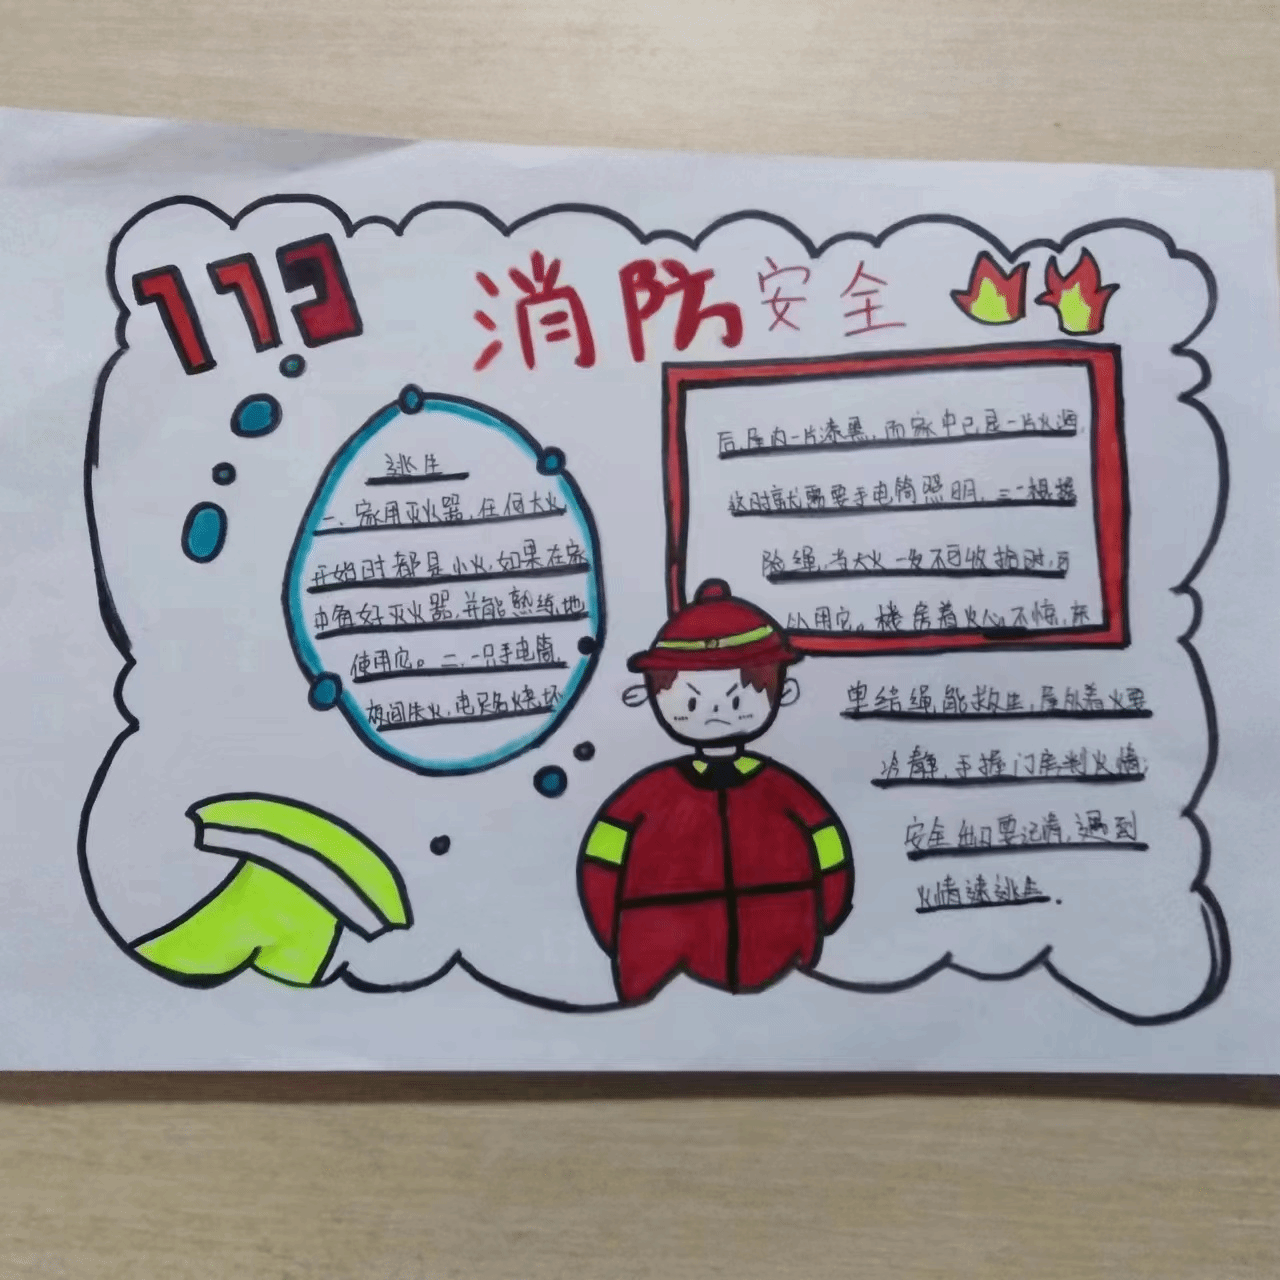 119
消防安全
逃生
一、家用灭火器,任何大火
开始时都是小火,如果在家
中备好灭火器,并能熟练地
使用它。二、一只手电筒,
夜间失火,电路烧坏
后,屋内一片漆黑,而家中已是一片火海,
这时就需要手电筒照明,三、一根救
险绳,当大火一发不可收拾时,可
以用它。楼房着火心不惊,床
单结绳能救生,屋外着火要
冷静,手握门房判火情;
安全出口要记清,遇到
火情速逃生.